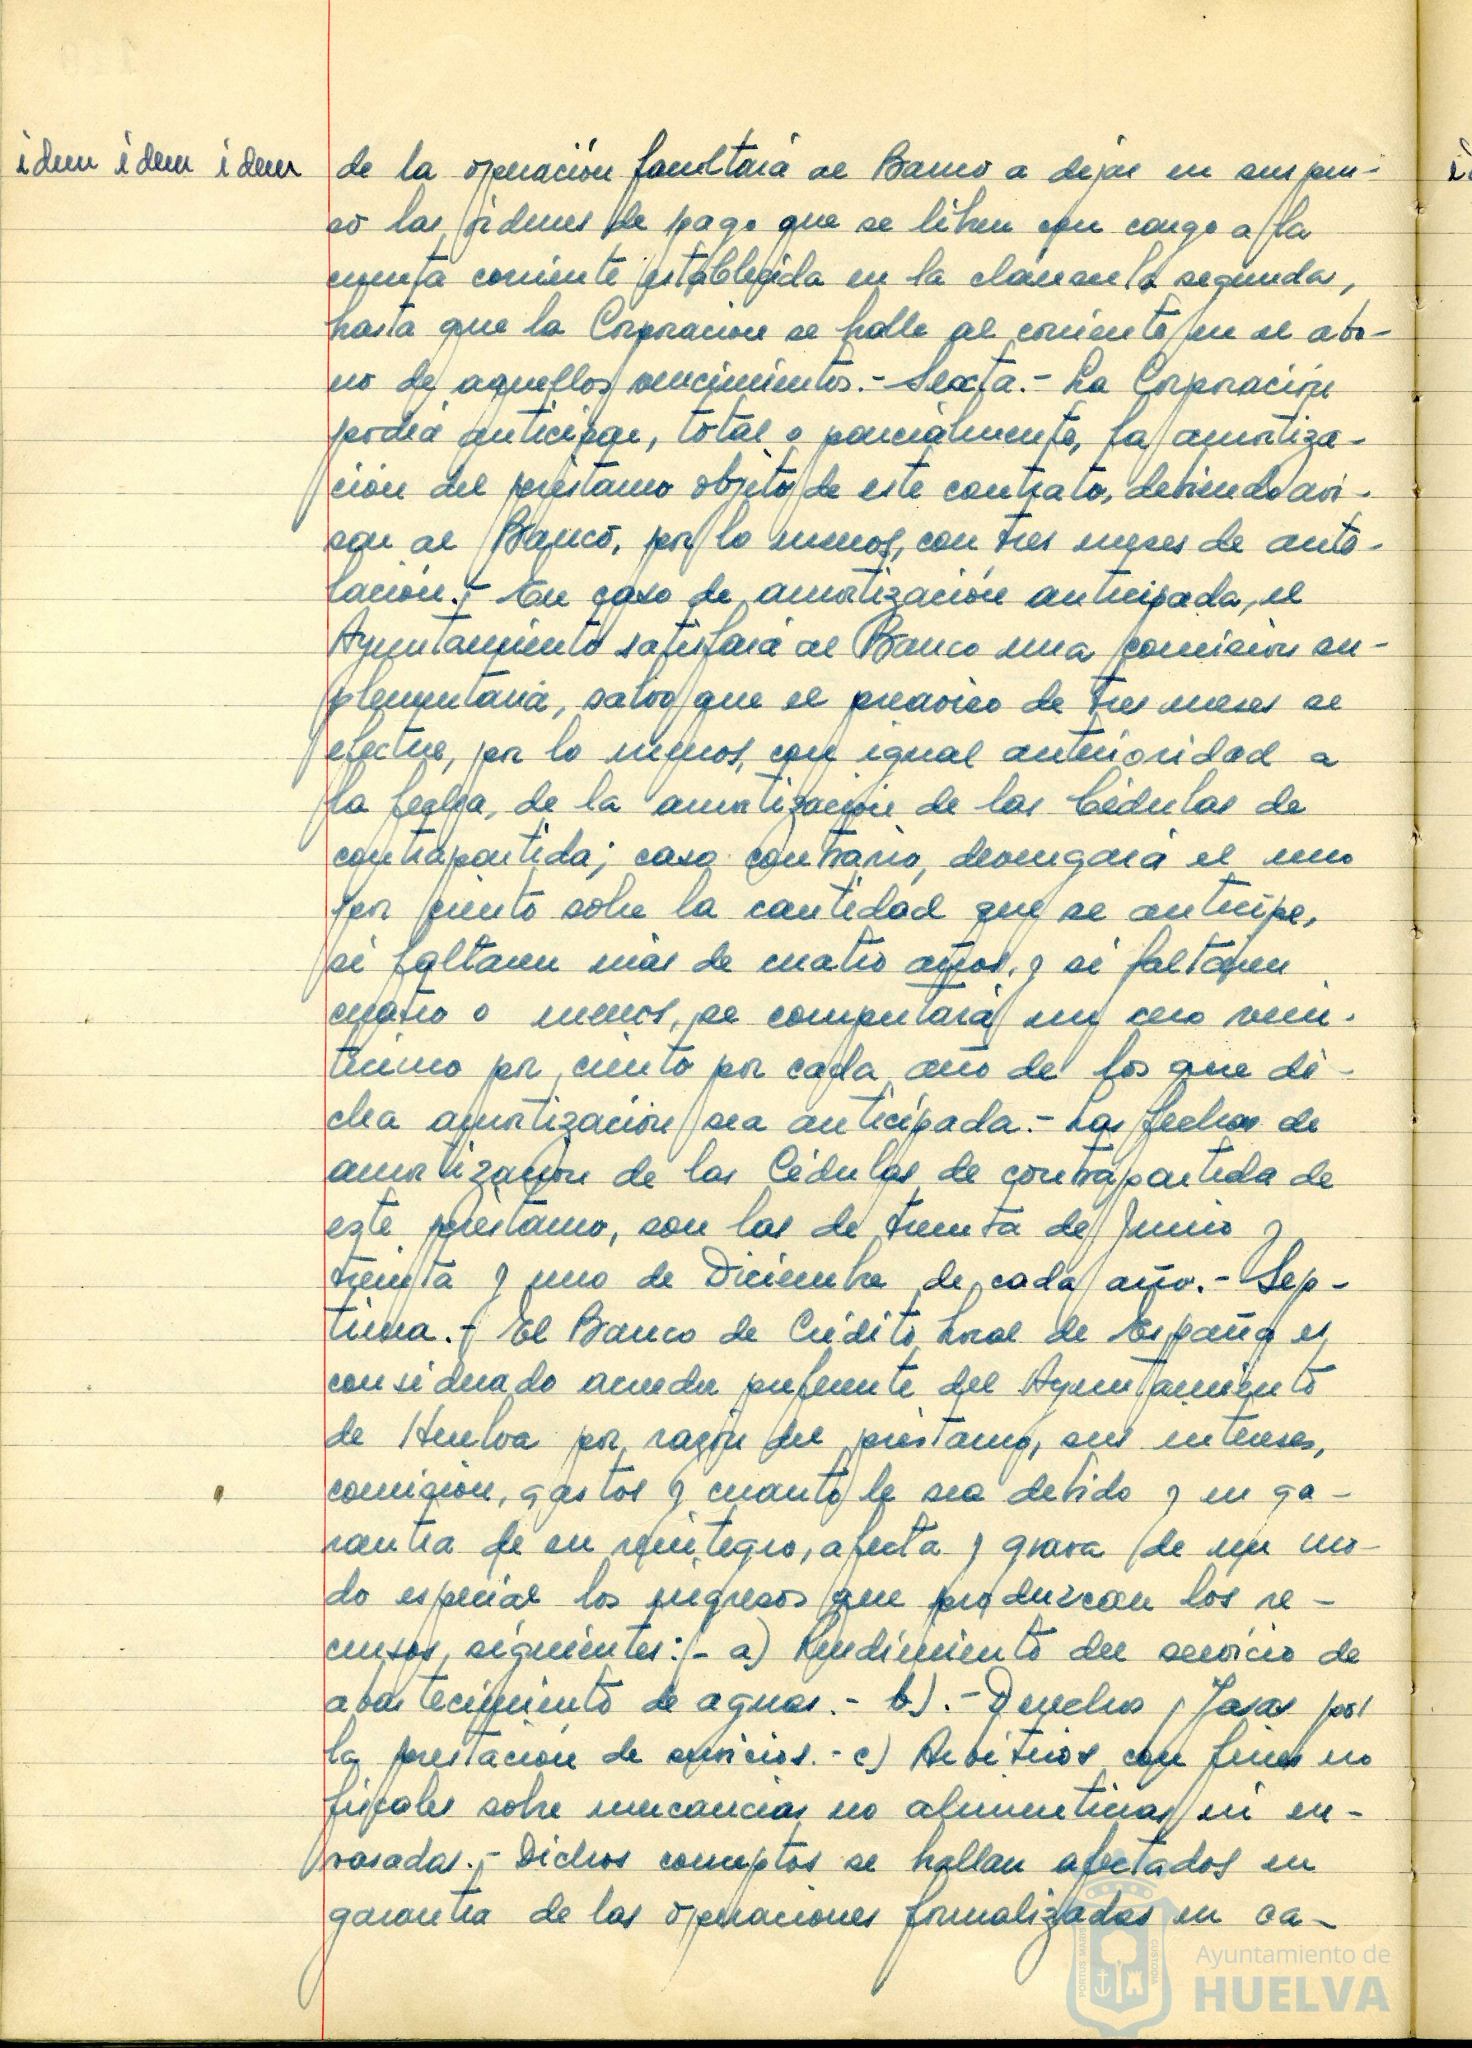 idem idem idem
de la operación facultará al Banco a dejar en suspen-
so las órdenes de pago que se libren con cargo a la
cuenta corriente establecida en la cláusula segunda,
hasta que la Corporación se halle al corriente en el abo-
no de aquellos vencimientos.- Sexta.- La Corporación
podrá anticipar, total o parcialmente, la amortiza-
ción del préstamo objeto de este contrato, debiendo avi-
sar al Banco, por lo menos, con tres meses de ante-
lación.- En caso de amortización anticipada, el
Ayuntamiento satisfará al Banco una comisión su-
plementaria, salvo que el preaviso de tres meses se
efectue, por lo menos, con igual anterioridad a
la fecha, de la amortización de las Cédulas de
contrapartida; caso contrario, devengará el uno
por ciento sobre la cantidad que se anticipe,
si faltaren más de cuatro años, y si faltaren
cuatro o menos, se computará un cero vein-
ticinco por ciento por cada año de los que di-
cha amortización sea anticipada.- Las fechas de
amortización de las Cédulas de contrapartida de
este préstamo, son las de treinta de Junio y
treinta y uno de Diciembre de cada año.- Sép-
tima.- El Banco de Crédito Local de España es
considerado acreedor preferente del Ayuntamiento
de Huelva por razón del préstamo, sus intereses,
comisión, gastos y cuanto le sea debido y en ga-
rantía de su reintegro, afecta y grava de un mo-
do especial los ingresos que produzcan los re-
cursos siguientes:- a) Rendimiento del servicio de
abastecimiento de aguas.- b).- Derechos y Tasas por
la prestación de servicios.- c) Arbitrios con fines no
fiscales sobre mercancías no alimenticias ni en-
vasadas.- Dichos conceptos se hallan afectados en
garantía de las operaciones formalizadas en ca-
PORTUS MARIS CUSTODIA
Ayuntamiento de
HUELVA